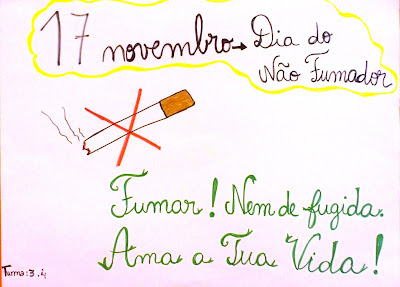 17 novembro → Dia do
Não Fumador
Fumar! Nem de fugida.
Ama a Tua Vida!
Turma: 3.4